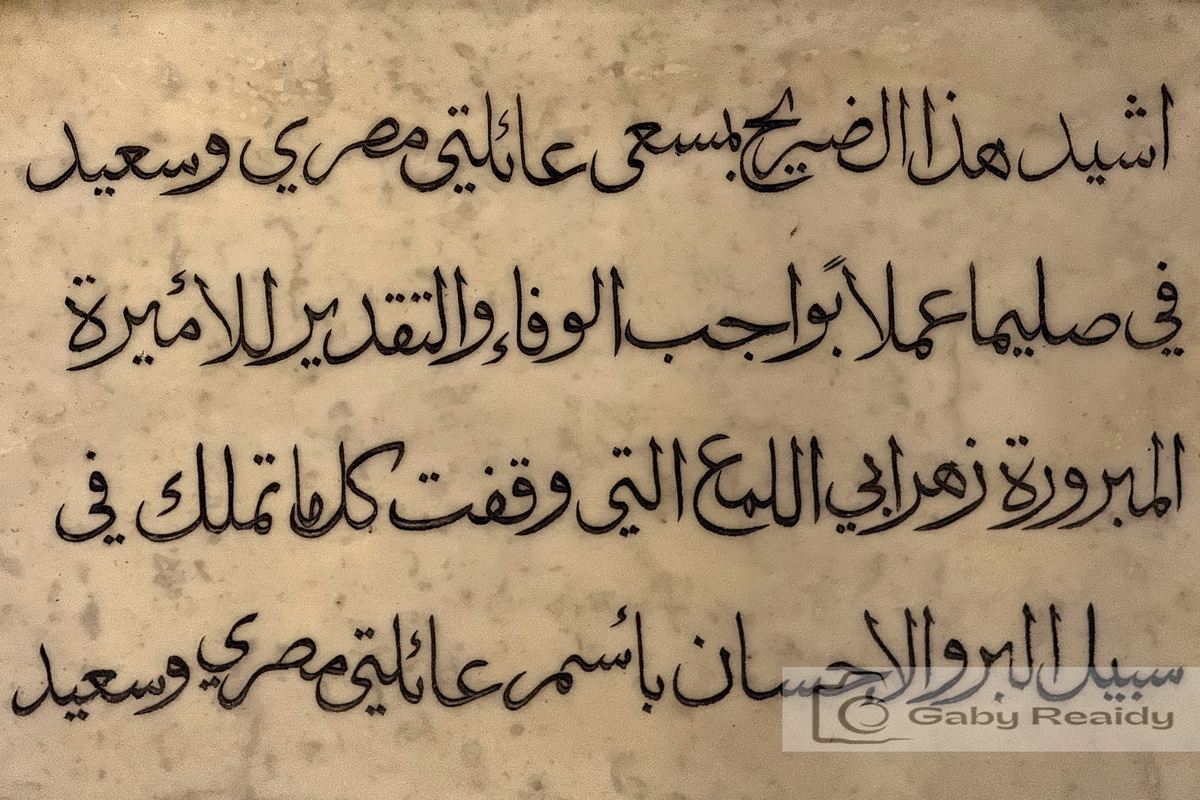 اشيد هذا الضريح بمسعى عائلتي مصري وسعيد
في صليما عملاً بواجب الوفاء والتقدير للأميرة
المبرورة زهر ابي اللمع التي وقفت كلما تملك في
سبيل البر والاحسان بأسم عائلتي مصري وسعيد
Gaby Reaidy